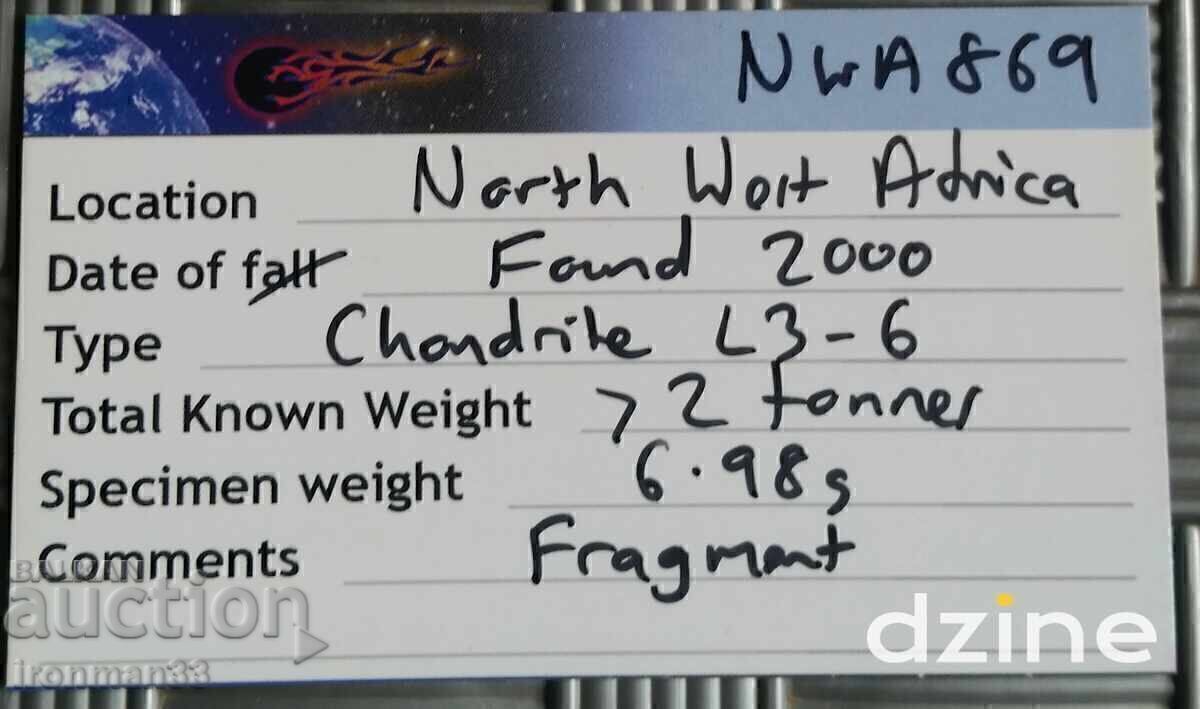 NWA 869
Location North West Africa
Date of fall Found 2000
Type Chondrite L3-6
Total Known Weight >2 tonnes
Specimen weight 6.98g
Comments Fragment
BALKAN
auction
ironman33
dzine